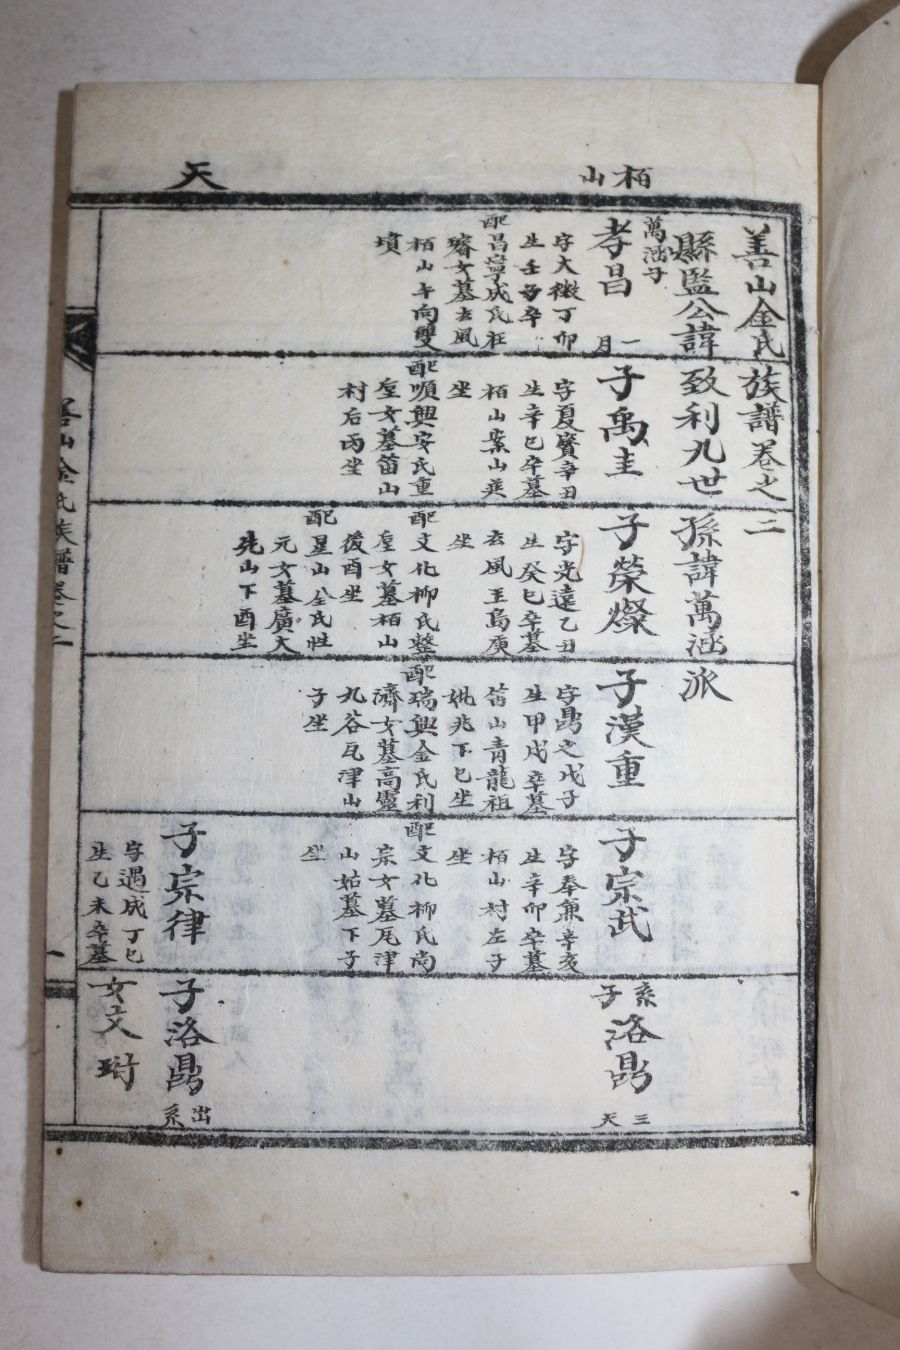 栢山
天
善山金氏族譜卷之二
縣監公諱致利九世孫諱萬涵派
萬涵子
孝昌
一月
字大徵丁卯
生壬子卒
配昌寧成氏枉
璿女墓玄風
栢山午向雙
墳
子禹圭
字夏寶辛丑
生辛巳卒墓
栢山案山巽
坐
配順興安氏重
垕女墓笛山
村右丙坐
子榮燦
字光遠乙丑
生癸巳卒墓
玄風王島庚
坐
配文化柳氏整
垕女墓栢山
後酉坐
配星山全氏胜
元女墓廣大
先山下酉坐
子漢重
字鼎之戊子
生甲戌卒墓
笛山青龍祖
妣兆下巳坐
配瑞興金氏利
濟女墓高靈
九谷瓦津山
子坐
子宗武
字奉兼辛亥
生辛卯卒墓
栢山村左子
坐
配文化柳氏尚
宗女墓瓦津
山姑墓下子
坐
子宗律
字遇成丁巳
生乙未卒墓
系子
洛鼎
三天
子洛鼎
出系
女文珩
善山金氏族譜卷之二
一